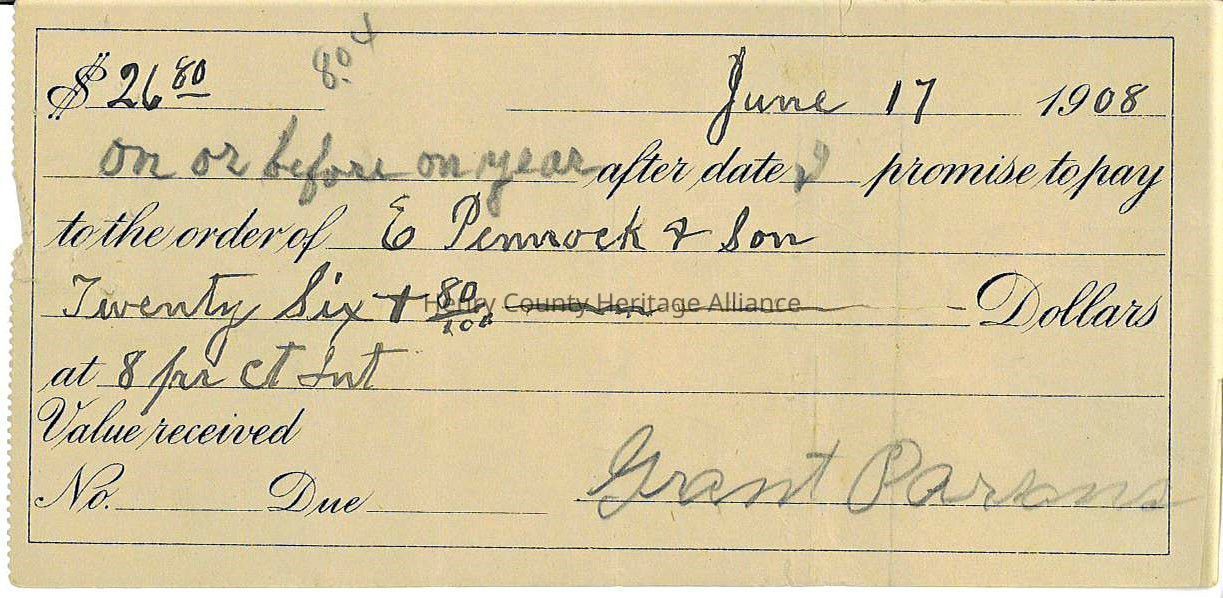 $ 26 80 80 4 June 17 1908
on or before on year after date I promise to pay
to the order of E Pennock & Son
Twenty Six + 80/100 Dollars
Henry County Heritage Alliance
at 8 per ct Int
Value received
No. Due Grant Parsons